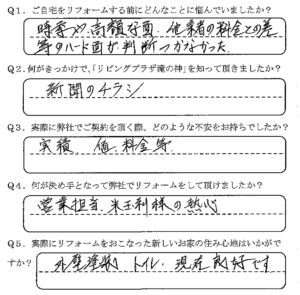 Q1. ご自宅をリフォームする前にどんなことに悩んでいましたか?
時季や、高額な面、他業者の料金との差
等のハード面が判断つかなかった
Q2. 何がきっかけで、「リビングプラザ滝の神」を知って頂きましたか?
新聞のチラシ
Q3. 実際に弊社でご契約を頂く際、どのような不安をお持ちでしたか?
実績 価 料金等
Q4. 何が決め手となって弊社でリフォームをして頂けましたか?
営業担当、米玉利様の熱心
Q5. 実際にリフォームをおこなった新しいお家の住み心地はいかがで
すか?
外壁塗装 トイレ・現在良好です